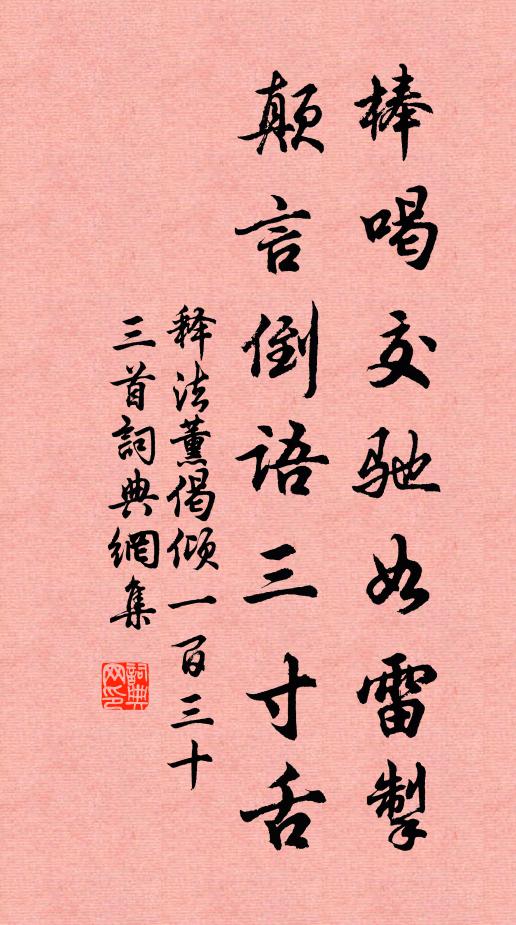 棒喝交驰如雷掣
颠言倒语三寸舌
释法薰偈倾一百三十
三首詞典網集
詞典网印